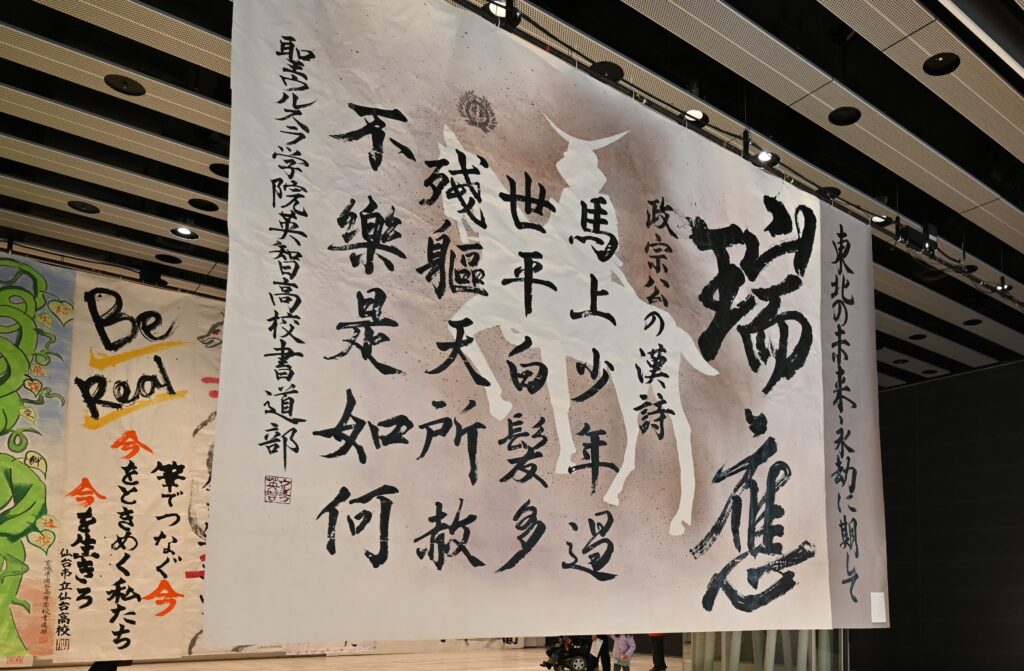 東北の未来、永劫に期して
瑞應
政宗公の漢詩
馬上少年過
世平白髪多
残軀天所赦
不樂是如何
聖ウルスラ学院英智高校書道部
Be
Real
筆でつなぐ今
今をときめく私たち
今を生きろ
仙台市立仙台高校